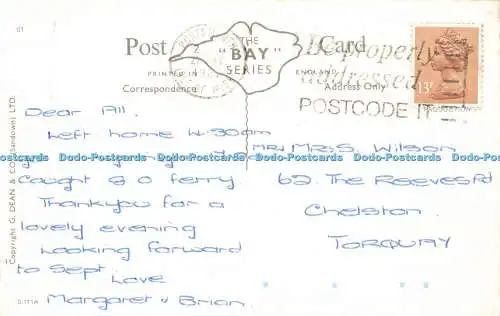 01
Post Card
THE
"BAY"
SERIES
PRINTED IN ENGLAND
Correspondence
Address Only
Be properly
addressed
POSTCODE IT
13
Dear All.
Left home 4.30am
caught 8 0 ferry
Thankyou for a
lovely evening
Looking forward
to Sept.
Love
Margaret & Brian.
Mr/Mrs. Wilson
62. The Reeves Rd
Chelston.
TORQUAY
Copyright G. DEAN & CO. (Sandown) LTD.
D.111A
Dodo-Postcards Dodo-Postcards Dodo-Postcards Dodo-Postcards Dodo-Postcards